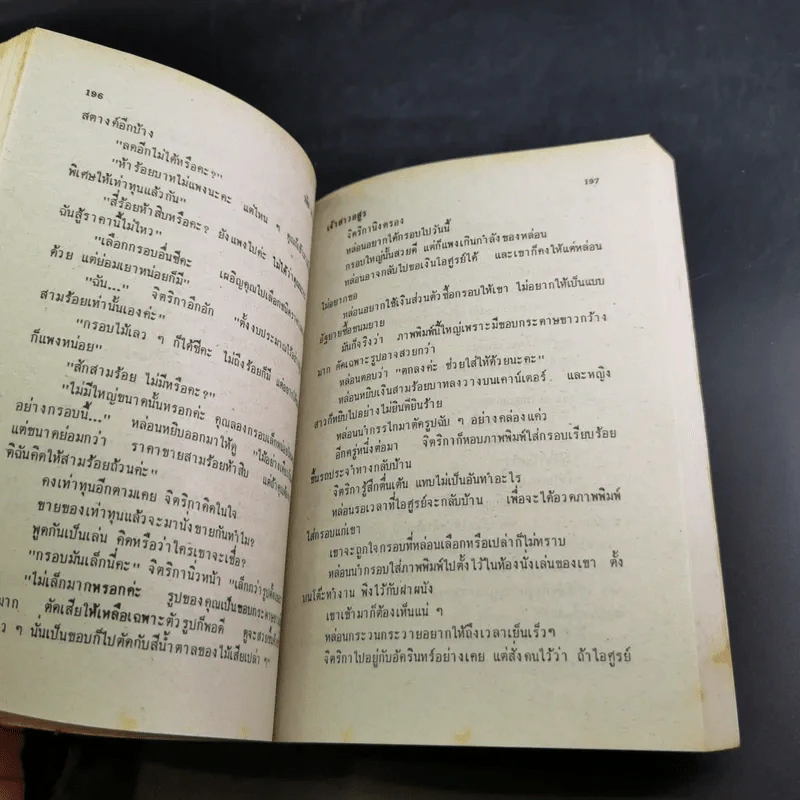 196
สตางค์อีกบ้าง
"ลดอีกไม่ได้หรือคะ?"
"ห้าร้อยบาทไม่แพงนะคะ แต่ไหน ๆ
พิเศษให้เท่าทุนแล้วกัน"
"สี่ร้อยห้าสิบหรือคะ? ยังแพงไปค่ะ ไม่ได้
ฉันสู้ราคานี้ไม่ไหว"
"เลือกกรอบอื่นซีคะ เผอิญคุณไปเลือกชนิด
ด้วย แต่ย่อมเยาหน่อยก็มี"
"ฉัน..." จิตริกาอึกอัก "ตั้งงบประมาณไว้
สามร้อยเท่านั้นเองค่ะ"
"กรอบไม้เลว ๆ ก็ได้ซีคะ ไม่ถึงร้อยก็มี แต่
ก็แพงหน่อย"
"สักสามร้อย ไม่มีหรือคะ?"
"ไม่มีใหญ่ขนาดนั้นหรอกค่ะ คุณลองกรอบเล็ก
อย่างกรอบนี้..." หล่อนหยิบออกมาให้ดู "ไม้อย่าง
แต่ขนาดย่อมกว่า ราคาขายสามร้อยห้าสิบ แต่ถ้าคุณ
ดิฉันคิดให้สามร้อยถ้วนค่ะ"
คงเท่าทุนอีกตามเคย จิตริกาคิดในใจ
ขายของเท่าทุนแล้วจะมานั่งขายกันทำไม?
พูดกันเป็นเล่น คิดหรือว่าใครเขาจะเชื่อ?
"กรอบมันเล็กนี่คะ" จิตริกานิ่วหน้า "เล็กกว่ารูป
"ไม่เล็กมากหรอกค่ะ รูปของคุณเป็นขอบกระดาษ
มาก ตัดเสียให้เหลือเฉพาะตัวรูปก็พอดี ดูจะสวย
ว ๆ นั่นเป็นขอบก็ไปตัดกับสีน้ำตาลของไม้เสียเปล่า ๆ
197
เจ้าสาวอสูร
จิตริกานิ่งตรอง
หล่อนอยากได้กรอบไปวันนี้
กรอบใหญ่นั้นสวยดี แต่ก็แพงเกินกำลังของหล่อน
หล่อนอาจกลับไปขอเงินไอศูรย์ได้ และเขาก็คงให้แต่หล่อน
ไม่อยากขอ
หล่อนอยากใช้เงินส่วนตัวซื้อกรอบให้เขา ไม่อยากให้เป็นแบบ
อัฐยายซื้อขนมยาย
มันก็จริงว่า ภาพพิมพ์นี้ใหญ่เพราะมีขอบกระดาษขาวกว้าง
มาก ตัดเฉพาะรูปอาจสวยกว่า
หล่อนตอบว่า "ตกลงค่ะ ช่วยใส่ให้ด้วยนะคะ"
หล่อนหยิบเงินสามร้อยบาทลงวางบนเคาน์เตอร์ และหญิง
สาวก็หยิบไปอย่างไม่ยินดียินร้าย
หล่อนนำกรรไกรมาตัดรูปฉับ ๆ อย่างคล่องแคล่ว
อีกครู่หนึ่งต่อมา จิตริกาก็หอบภาพพิมพ์ใส่กรอบเรียบร้อย
ขึ้นรถประจำทางกลับบ้าน
จิตริการู้สึกตื่นเต้น แทบไม่เป็นอันทำอะไร
หล่อนรอเวลาที่ไอศูรย์จะกลับบ้าน เพื่อจะได้อวดภาพพิมพ์
ใส่กรอบแก่เขา
เขาจะถูกใจกรอบที่หล่อนเลือกหรือเปล่าก็ไม่ทราบ
หล่อนนำกรอบใส่ภาพพิมพ์ไปตั้งไว้ในห้องนั่งเล่นของเขา ตั้ง
บนโต๊ะทำงาน พิงไว้กับฝาผนัง
เขาเข้ามาก็ต้องเห็นแน่ ๆ
หล่อนกระวนกระวายอยากให้ถึงเวลาเย็นเร็วๆ
จิตริกาไปอยู่กับอัครินทร์อย่างเคย แต่สั่งคนไว้ว่า ถ้าไอศูรย์